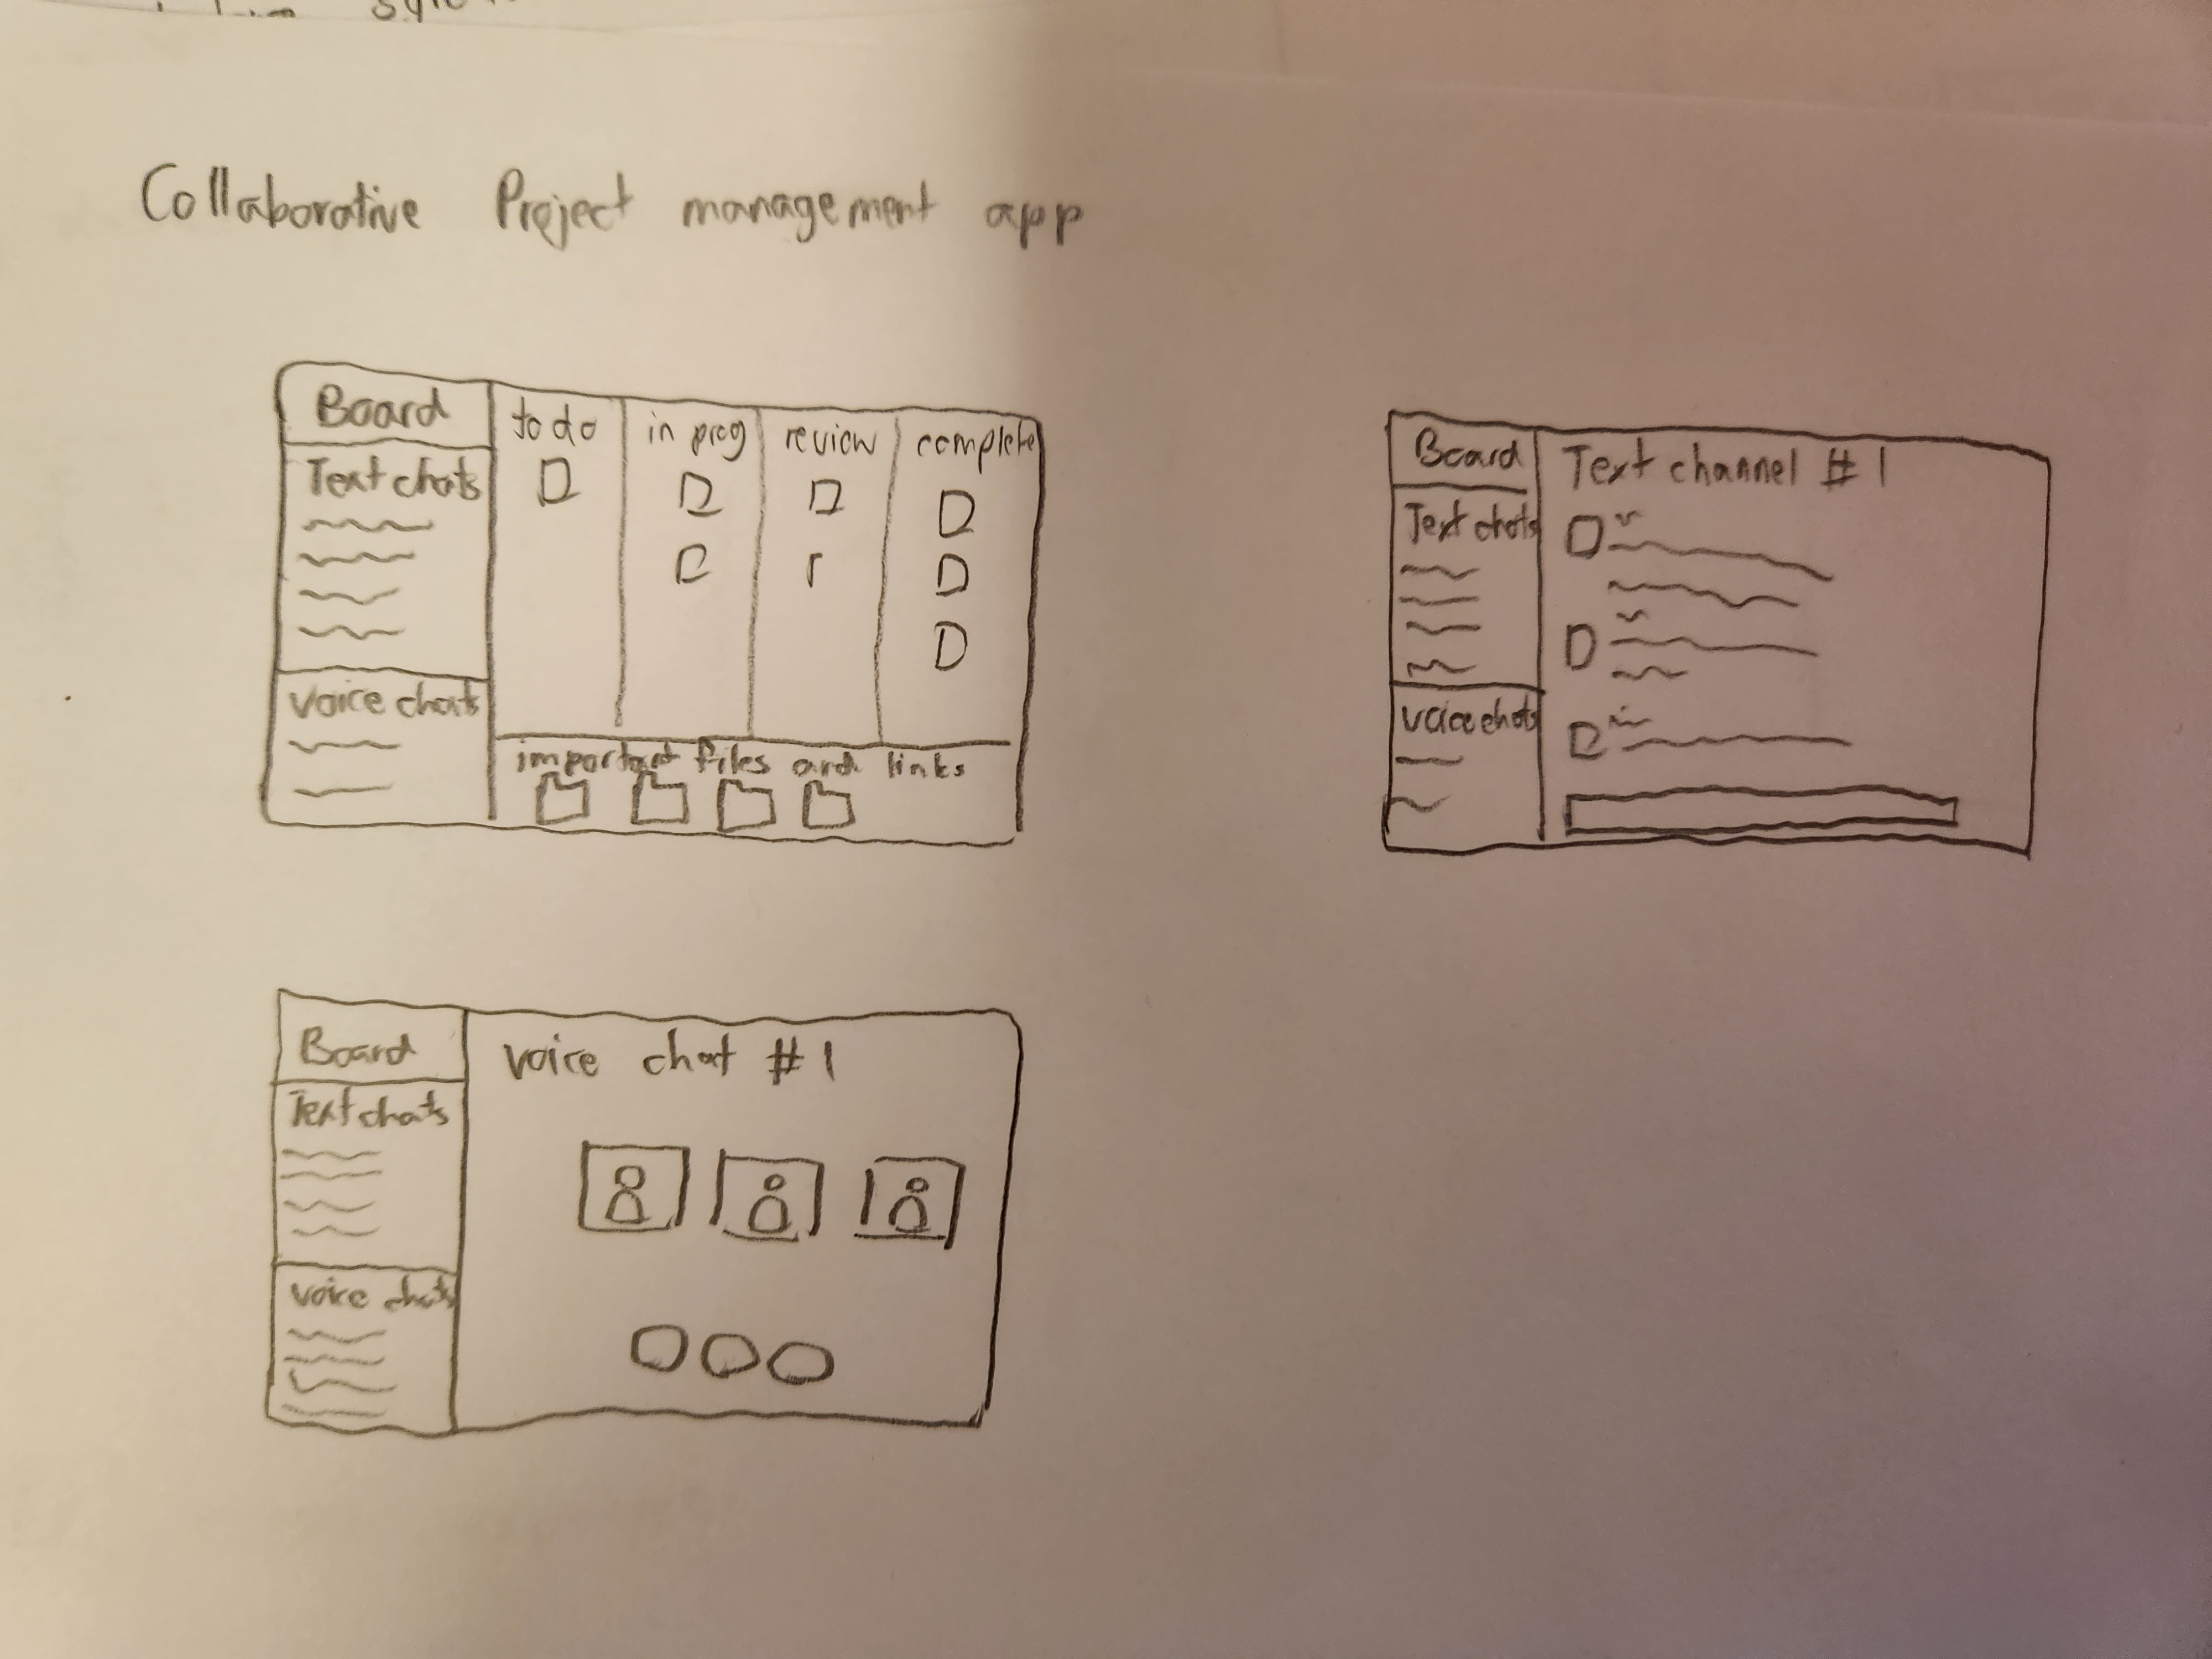 Collaborative Project management app
Board
Text chats
voice chats
to do
in prog
review
complete
important files and links
Board
Text chats
voice chats
Text channel #1
Board
Text chats
voice chats
voice chat #1